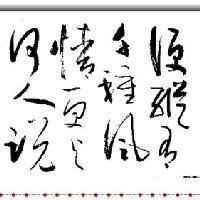 便縱有
千種風
情更与
何人說